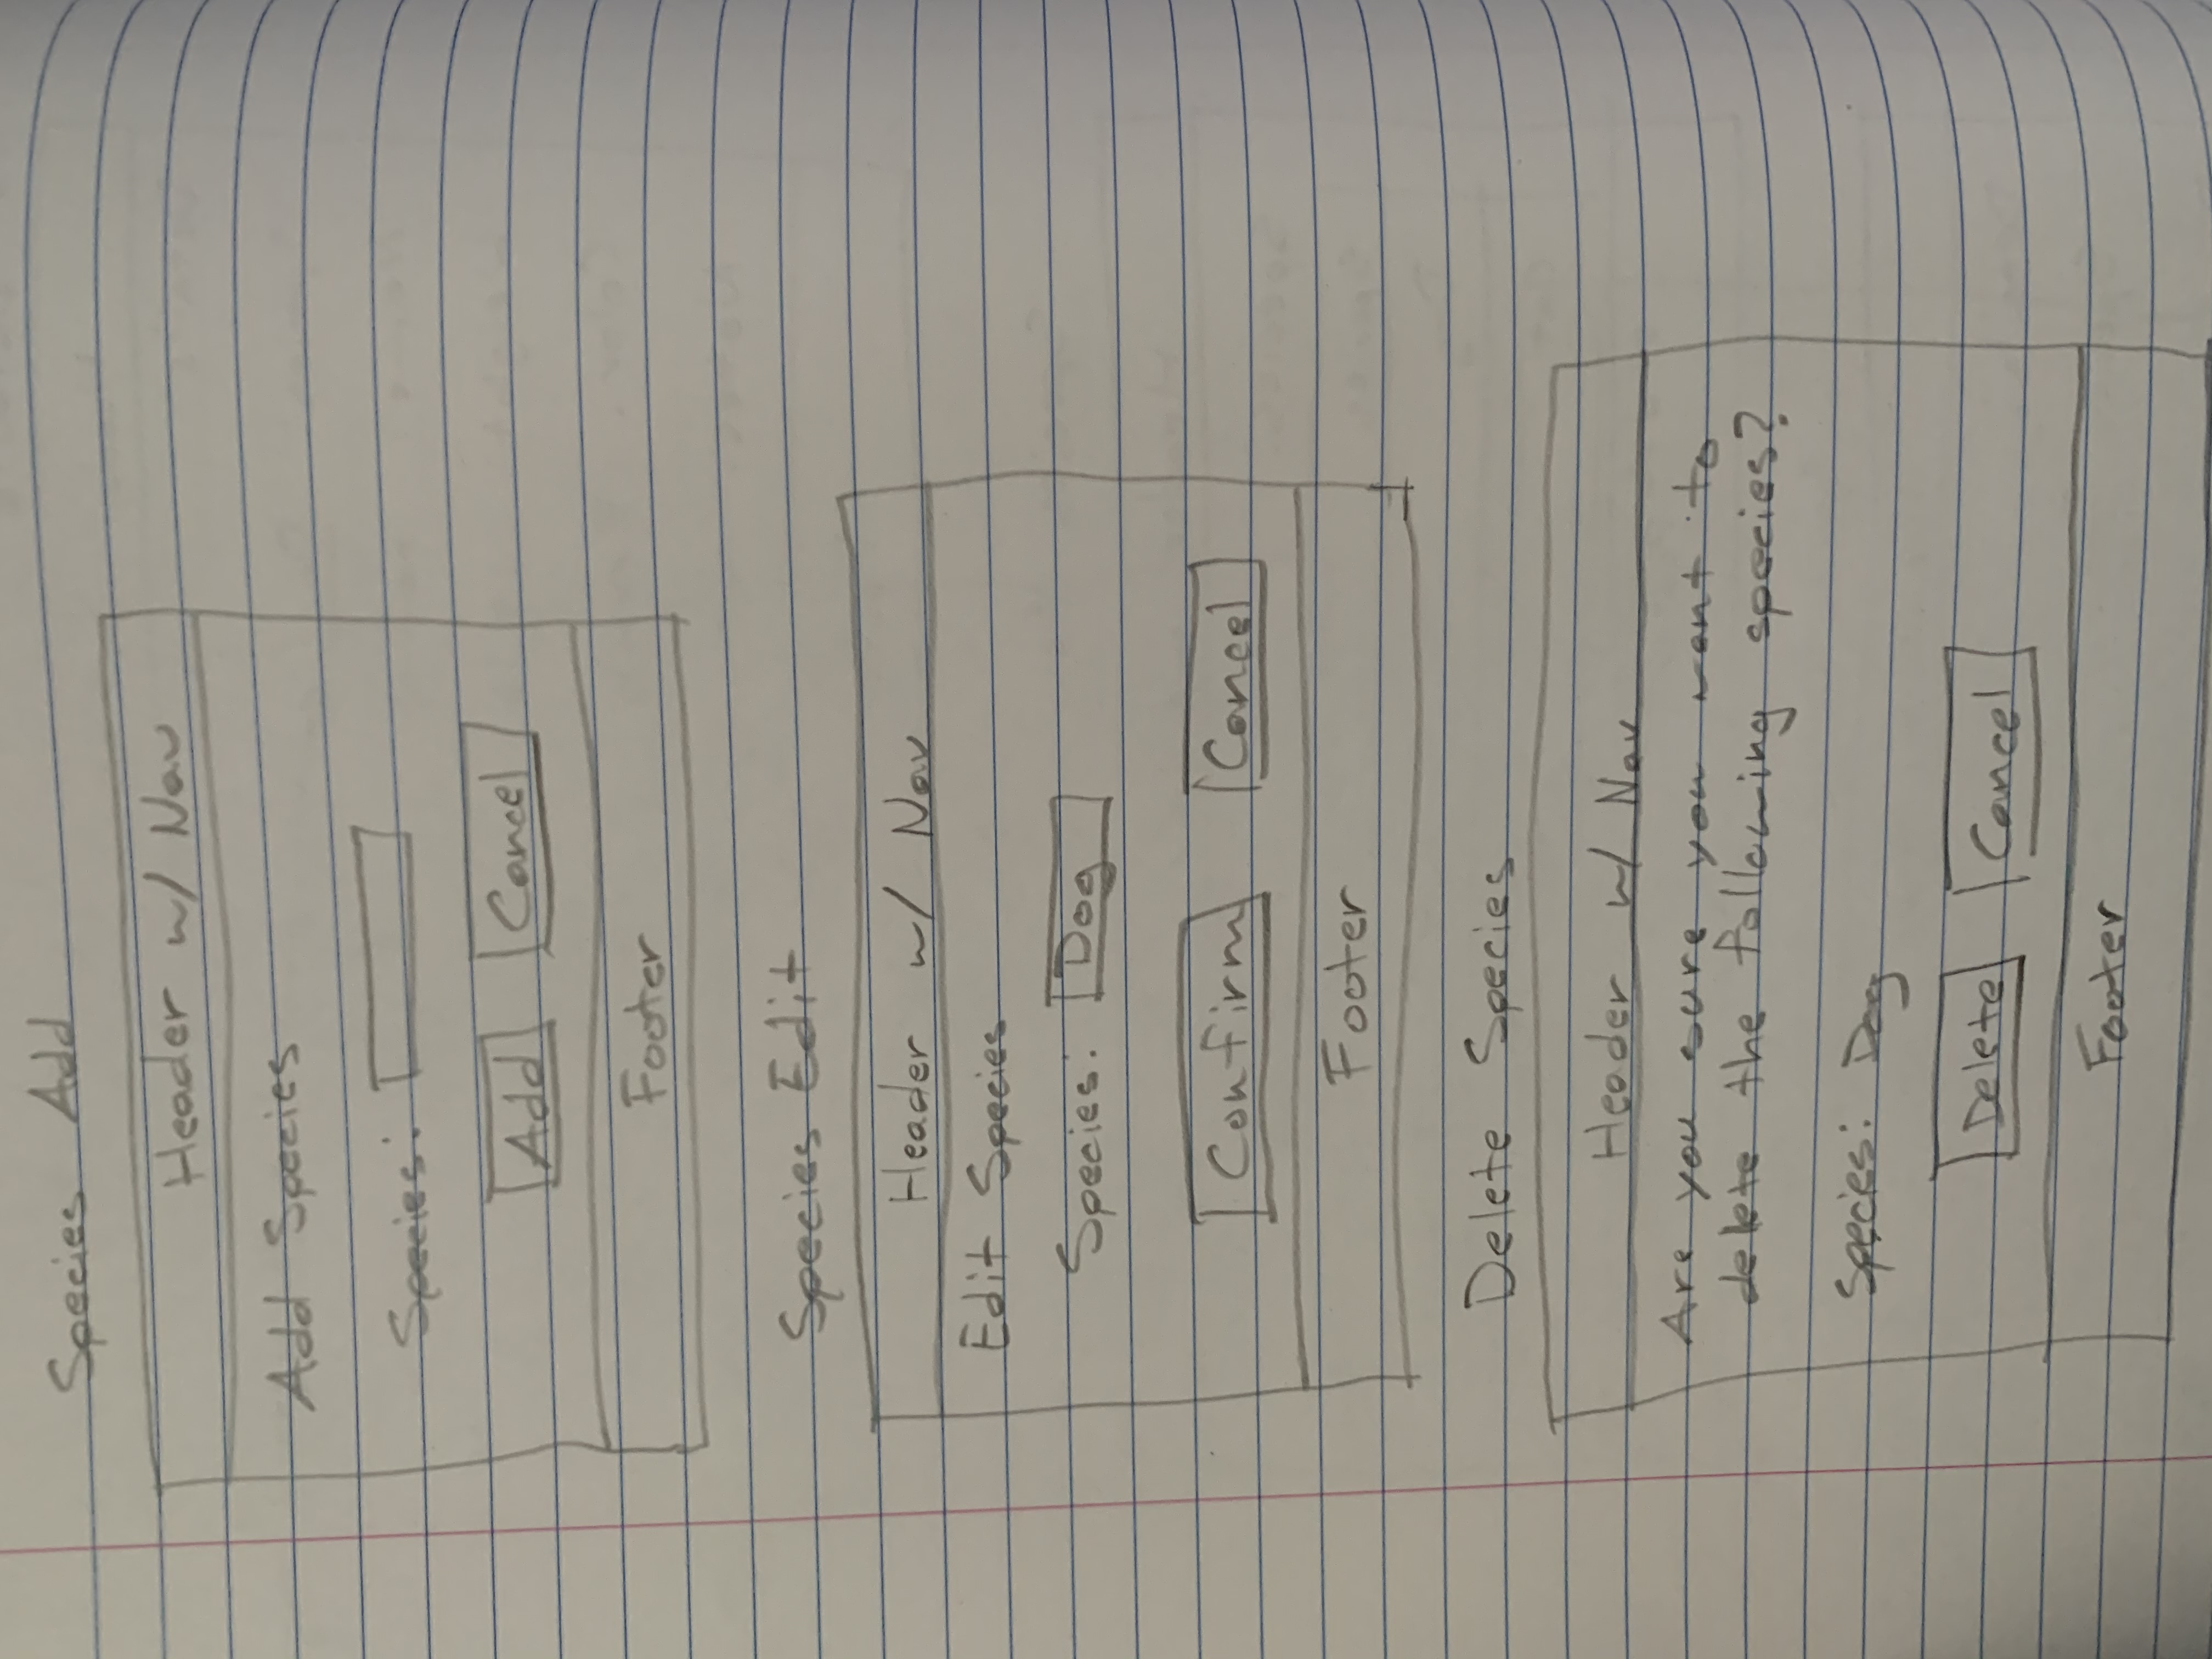 Species Add
Header w/ Nav
Add Species
Species:
Add Cancel
Footer
Species Edit
Header w/ Nav
Edit Species
Species: Dog
Confirm Cancel
Footer
Delete Species
Header w/ Nav
Are you sure you want to
delete the following species?
Species: Dog
Delete Cancel
Footer